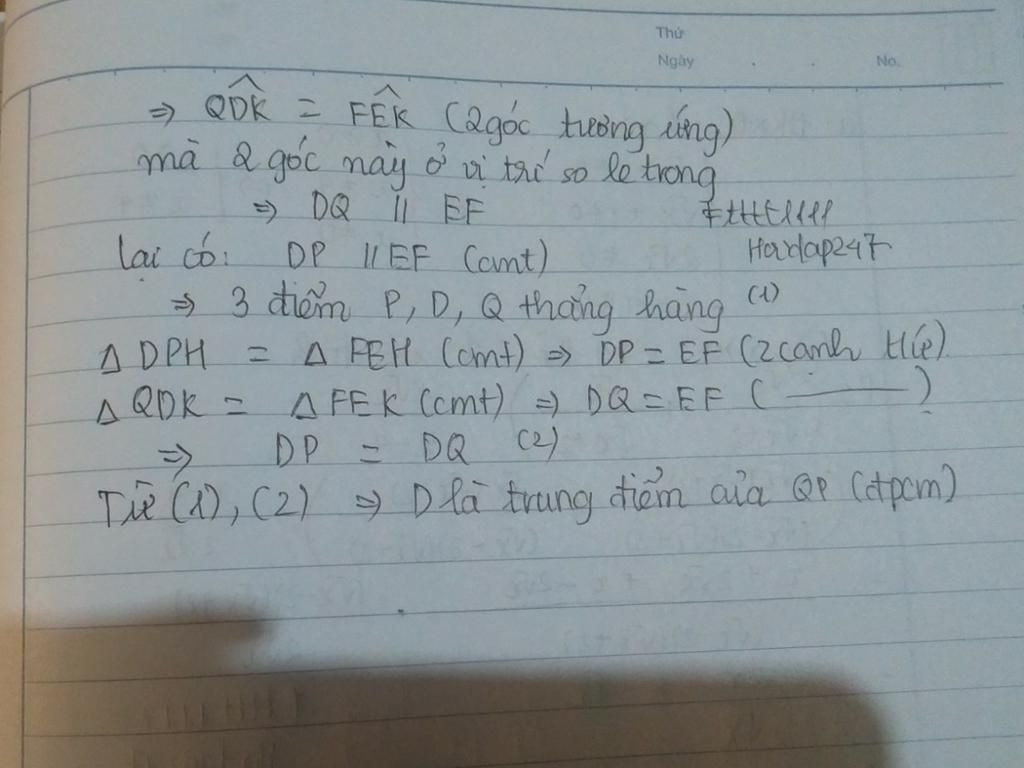 Thứ
Ngày . . No.
⇒ QDK̂ = FEK̂ (2 góc tương ứng)
mà 2 góc này ở vị trí so le trong
⇒ DQ // EF
Lại có: DP // EF (cmt)
Hoidap247
⇒ 3 điểm P, D, Q thẳng hàng (1)
Δ DPH = Δ FEH (cmt) ⇒ DP = EF (2 cạnh t/ứ)
Δ QDK = Δ FEK (cmt) ⇒ DQ = EF ( —— )
⇒ DP = DQ (2)
Từ (1), (2) ⇒ D là trung điểm của QP (đpcm)